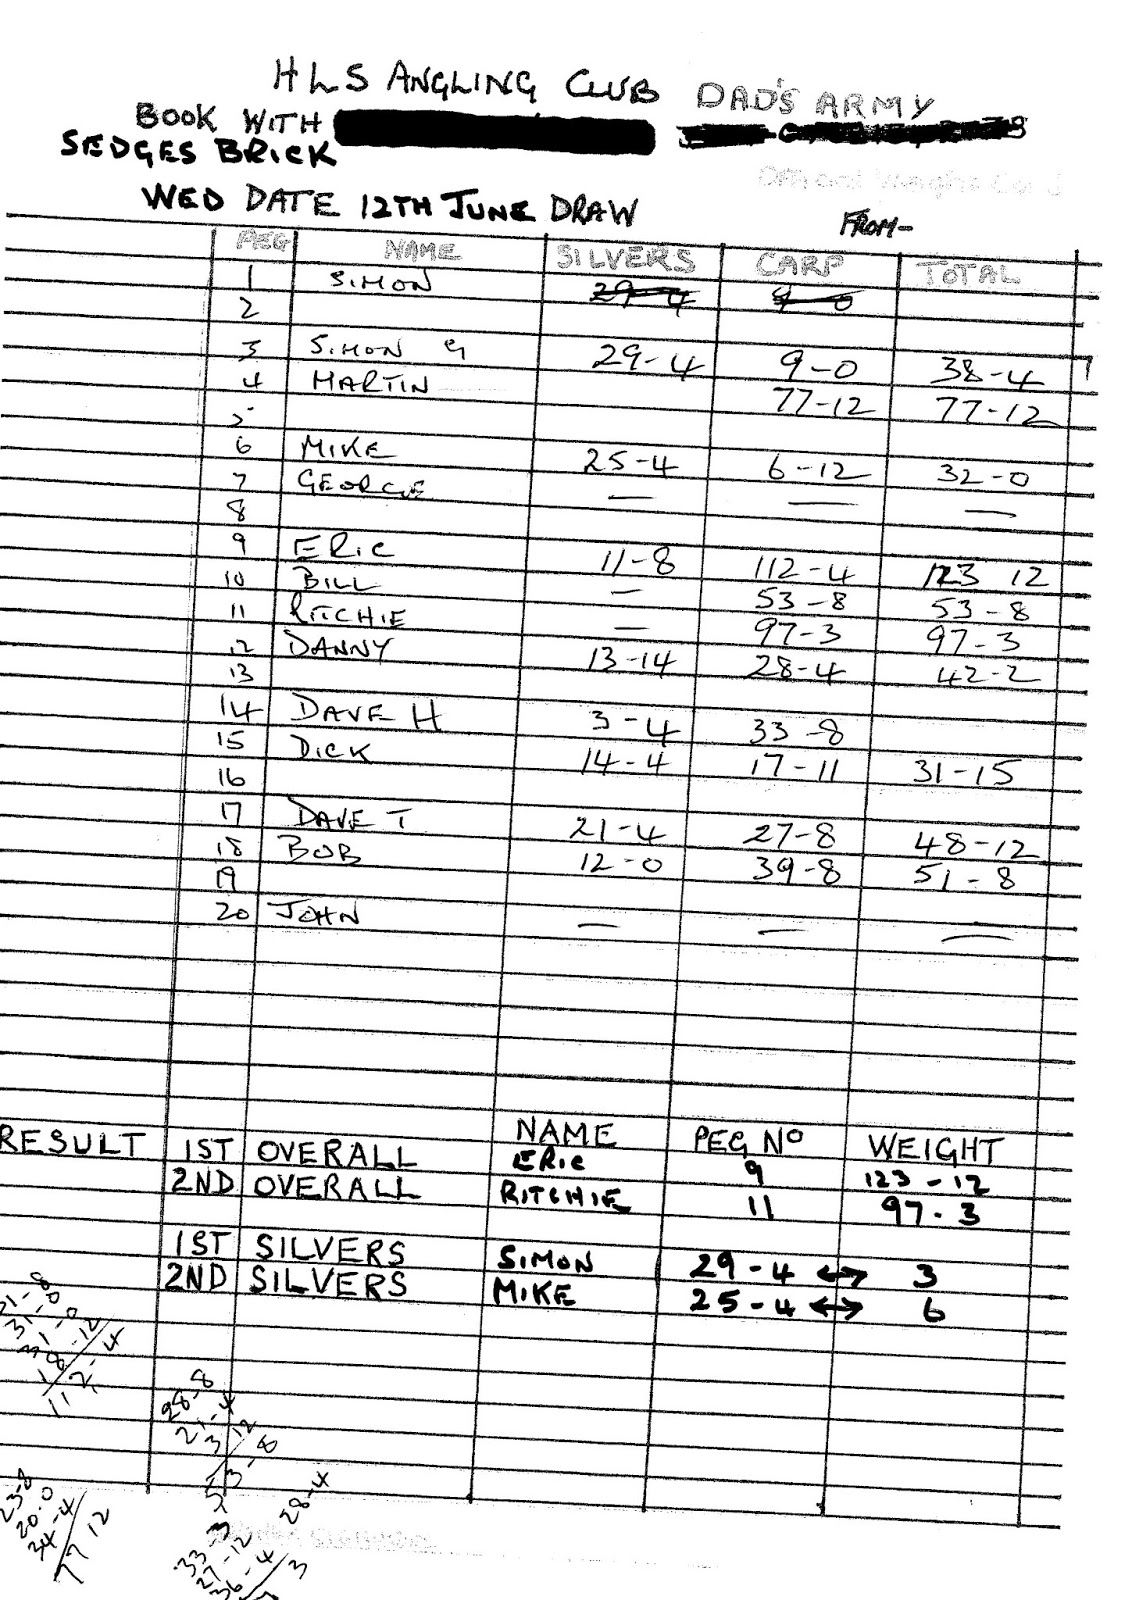 HLS ANGLING CLUB DAD'S ARMY
BOOK WITH
SEDGES BRICK
Official Weigh Card
WED DATE 12TH JUNE DRAW FROM-
PEG NAME SILVERS CARP TOTAL
1 SIMON 29-4 9-0
2
3 SIMON G 29-4 9-0 38-4
4 MARTIN 77-12 77-12
5
6 MIKE 25-4 6-12 32-0
7 GEORGE — — —
8
9 ERIC 11-8 112-4 123 12
10 BILL — 53-8 53-8
11 RITCHIE — 97-3 97-3
12 DANNY 13-14 28-4 42-2
13
14 DAVE H 3-4 33-8
15 DICK 14-4 17-11 31-15
16
17 DAVE T 21-4 27-8 48-12
18 BOB 12-0 39-8 51-8
19
20 JOHN — — —
NAME PEG Nº WEIGHT
RESULT 1ST OVERALL ERIC 9 123-12
2ND OVERALL RITCHIE 11 97-3
1ST SILVERS SIMON 29-4 ↔ 3
2ND SILVERS MIKE 25-4 ↔ 6
31-0
18-12
112-4
28-8
21-4
3-12
53-8
23-8
20-0
34-4
77 12
28-4
33-3
27-12
36-4